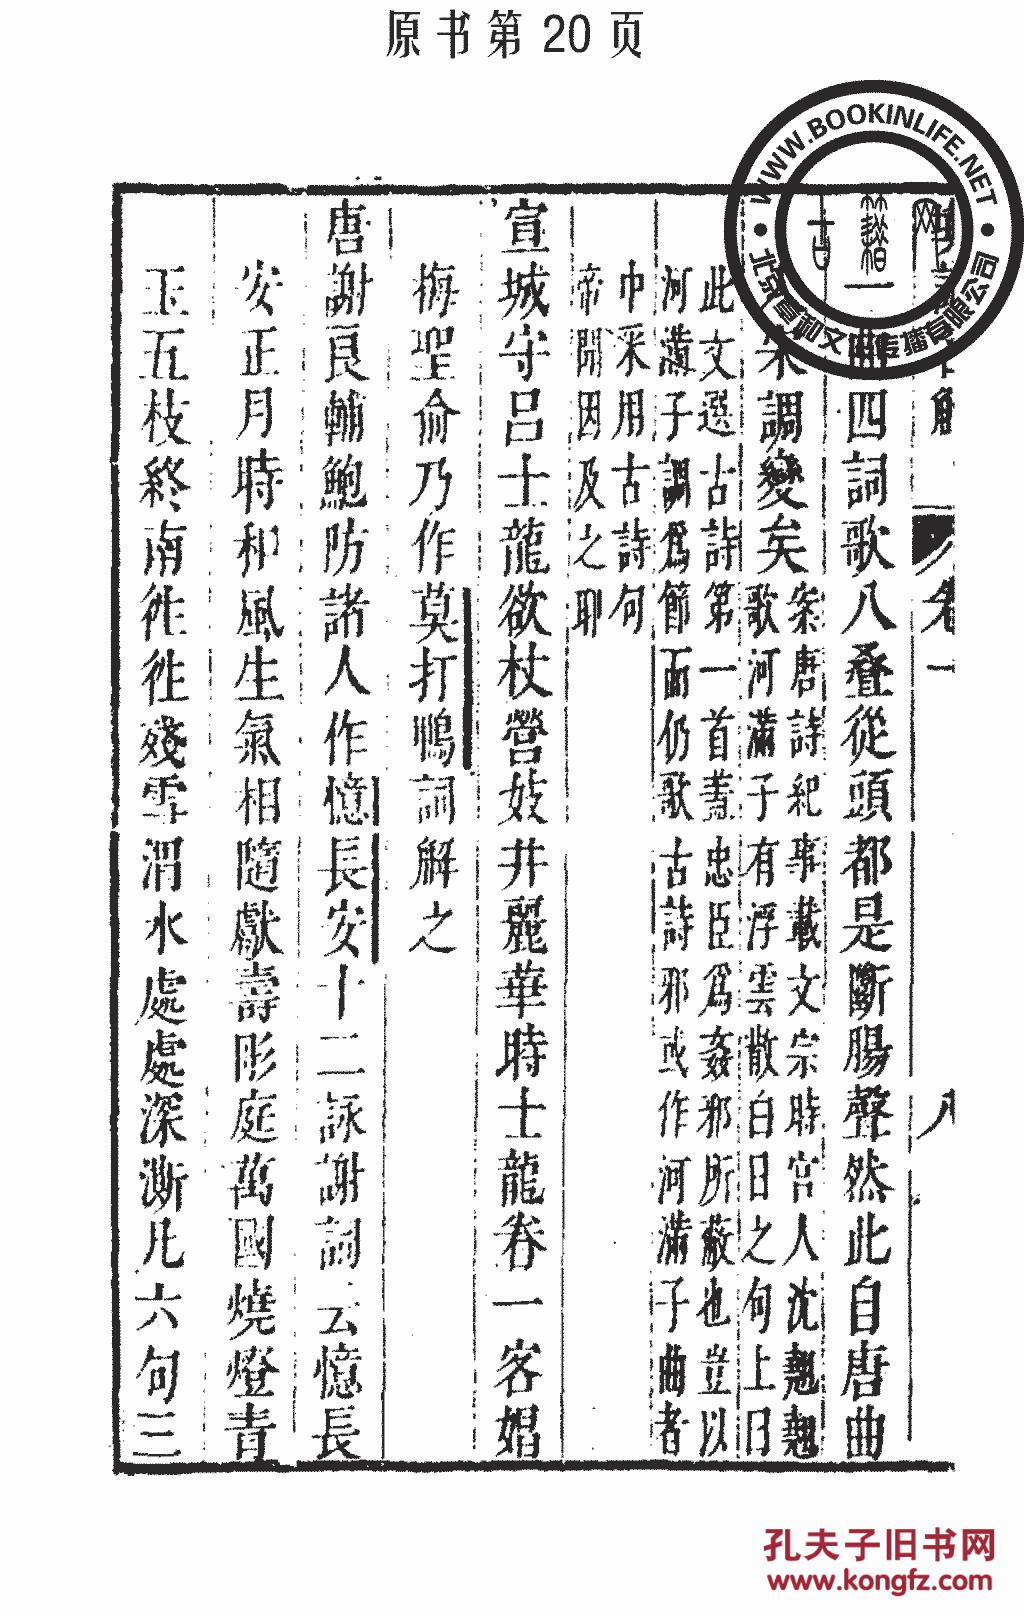 原书第20页
WWW.BOOKINLIFE.NET
北京 文 传播有限公司
卷一
八
曲四詞歌八疊從頭都是斷腸聲然此自唐曲
宋調變矣
案唐詩紀事載文宗時宮人沈翹翹
歌河滿子有浮雲散白日之句上曰
此文選古詩第一首蓋忠臣爲姦邪所蔽也豈以
河滿子調爲節而仍歌古詩邪或作河滿子曲者
巾采用古詩句
帝開因及之耶
宣城守呂士龍欲杖營妓井麗華時士龍眷一客娼
梅聖俞乃作莫打鴨詞解之
唐謝良輔鮑防諸人作憶長安十二詠謝詞云憶長
安正月時和風生氣相隨獻壽彤庭萬國燒燈青
玉五枝終南徃徃殘雪渭水處處深澌凡六句三
孔夫子旧书网
www.kongfz.com